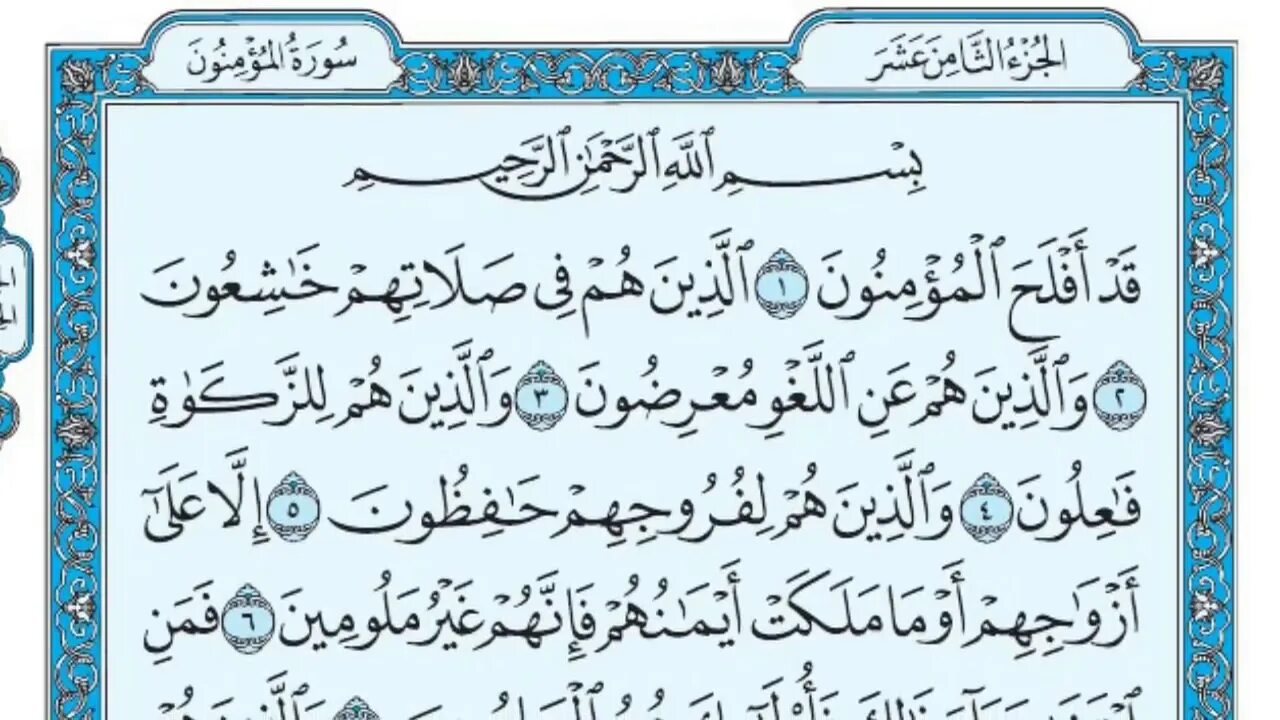 الجُزْءُ الثَّامِنَ عَشَرَ
سُورَةُ المُؤْمِنُونَ
بِسْمِ ٱللَّهِ ٱلرَّحْمَٰنِ ٱلرَّحِيمِ
قَدْ أَفْلَحَ ٱلْمُؤْمِنُونَ ١ ٱلَّذِينَ هُمْ فِى صَلَاتِهِمْ خَٰشِعُونَ
٢ وَٱلَّذِينَ هُمْ عَنِ ٱللَّغْوِ مُعْرِضُونَ ٣ وَٱلَّذِينَ هُمْ لِلزَّكَوٰةِ
فَٰعِلُونَ ٤ وَٱلَّذِينَ هُمْ لِفُرُوجِهِمْ حَٰفِظُونَ ٥ إِلَّا عَلَىٰٓ
أَزْوَٰجِهِمْ أَوْ مَا مَلَكَتْ أَيْمَٰنُهُمْ فَإِنَّهُمْ غَيْرُ مَلُومِينَ ٦ فَمَنِ